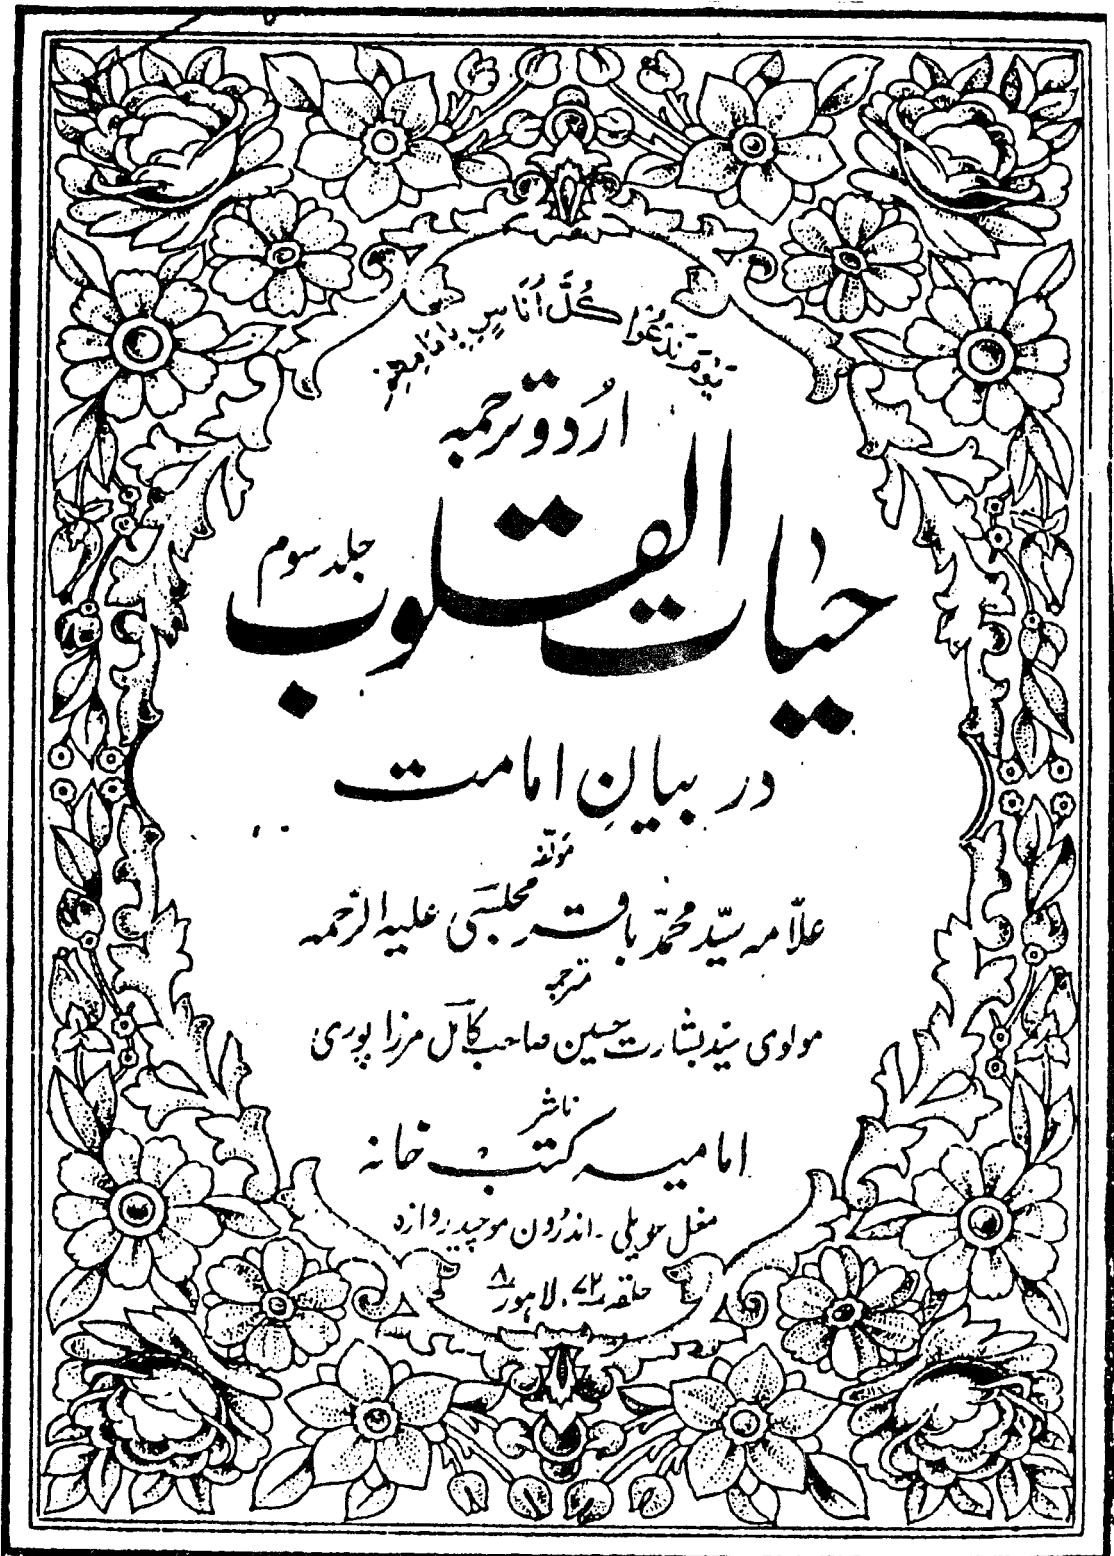 يَوْمَ نَدْعُوا كُلَّ أُنَاسٍ بِإِمَامِهِمْ
اُردو ترجمہ
حیات القلوب
جلد سوم
در بیانِ امامت
مؤلفہ
علّامہ سیّد محمّد باقر مجلسی علیہ الرّحمہ
مترجمہ
مولوی سیّد بشارت حسین صاحب کامل مرزا پوری
ناشر
امامیہ کتب خانہ
مغل حویلی ۔ اندرون موچیدروازہ
حلقہ ۷۲، لاہور ۸